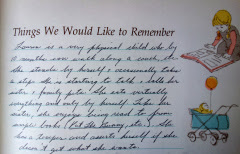 Things We Would Like to Remember
is a very physical child who by
months can walk along a couch, etc.
She stands by herself & occasionally takes
a step. She is starting to talk & calls her
sister & family pets. She eats virtually
anything and only by herself. Like her
sister, she enjoys being read to from
simple books (Pat the Bunny, etc.). She
has a temper and asserts herself if she
doesn't get what she wants.